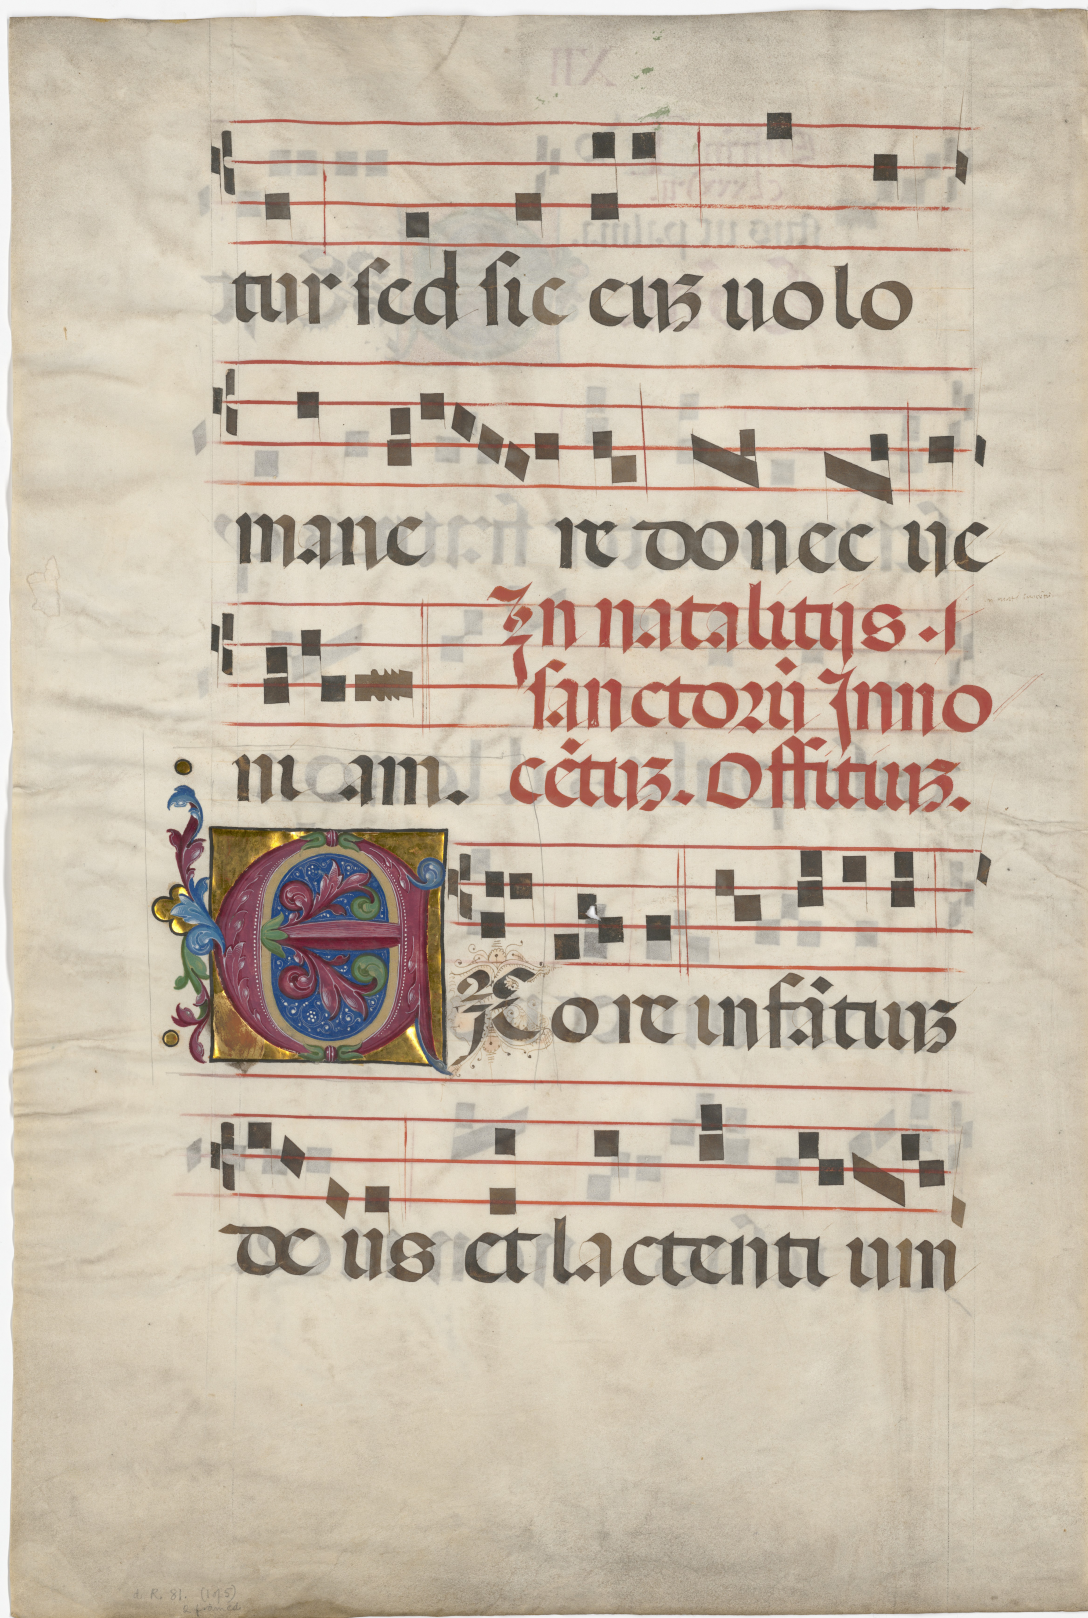 tur sed sic euꝫ uolo
mane re donec ue
In natalitijs .
sanctorũ Inno
ni am. cẽtiuꝫ. Offitiuꝫ.
EX ore infãtiuꝫ
de us et lactenti um